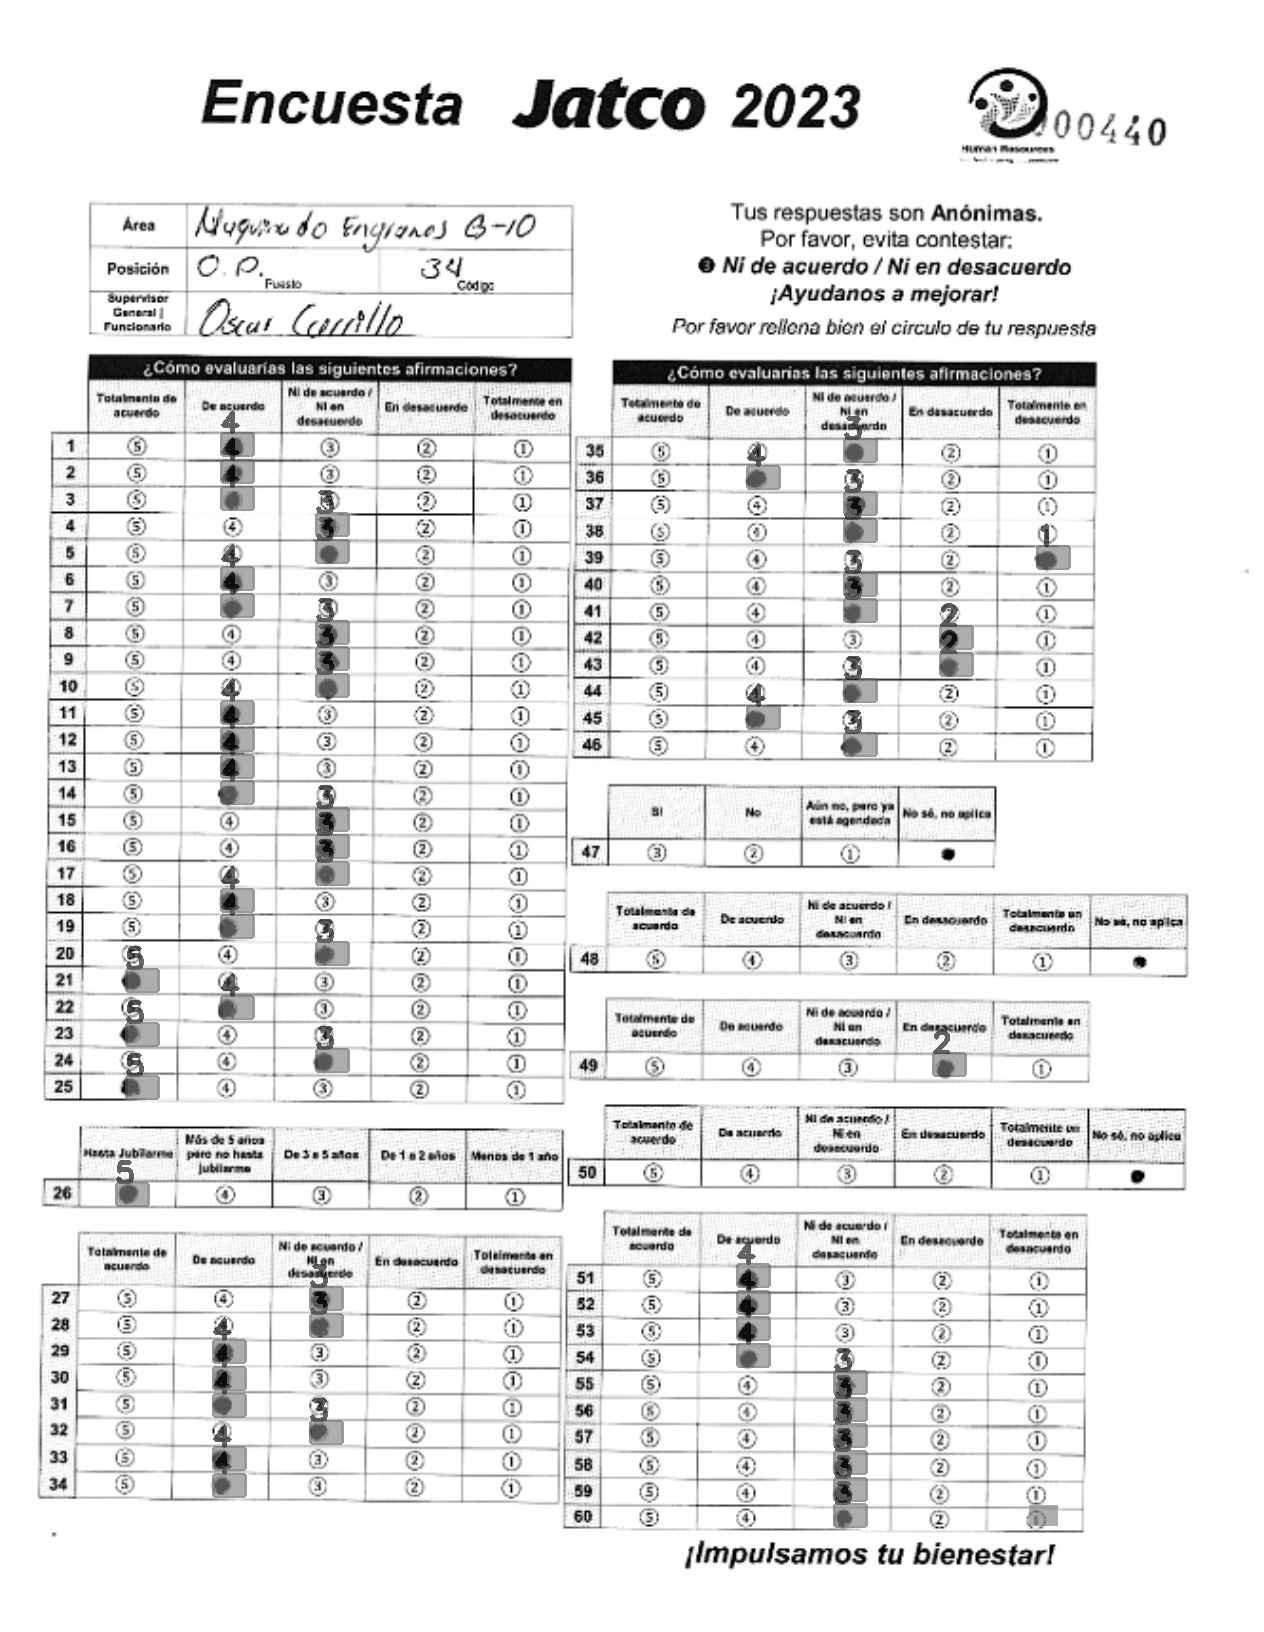 Encuesta Jatco 2023
Human Resources
000440
Área Maquinado Engranes B-10
Posición O.P. Puesto 34 Código
Supervisor General / Funcionario Oscar Carrillo
Tus respuestas son Anónimas.
Por favor, evita contestar:
❸ Ni de acuerdo / Ni en desacuerdo
¡Ayudanos a mejorar!
Por favor rellena bien el circulo de tu respuesta
¿Cómo evaluarías las siguientes afirmaciones?
Totalmente de acuerdo De acuerdo Ni de acuerdo / Ni en desacuerdo En desacuerdo Totalmente en desacuerdo
1 ⑤ 4 ③ ② ①
2 ⑤ 4 ③ ② ①
3 ⑤ 3 ② ①
4 ⑤ ④ 3 ② ①
5 ⑤ 4 ② ①
6 ⑤ 4 ③ ② ①
7 ⑤ 3 ② ①
8 ⑤ ④ 3 ② ①
9 ⑤ ④ 3 ② ①
10 ⑤ 4 ② ①
11 ⑤ 4 ③ ② ①
12 ⑤ 4 ③ ② ①
13 ⑤ 4 ③ ② ①
14 ⑤ 3 ② ①
15 ⑤ ④ 3 ② ①
16 ⑤ ④ 3 ② ①
17 ⑤ 4 ② ①
18 ⑤ 4 ③ ② ①
19 ⑤ 3 ② ①
20 5 ④ ② ①
21 4 ③ ② ①
22 5 ③ ② ①
23 ④ 3 ② ①
24 5 ④ ② ①
25 ④ ③ ② ①
Hasta Jubilarme Más de 5 años pero no hasta jubilarme De 3 a 5 años De 1 a 2 años Menos de 1 año
26 5 ④ ③ ② ①
Totalmente de acuerdo De acuerdo Ni de acuerdo / Ni en desacuerdo En desacuerdo Totalmente en desacuerdo
27 ⑤ ④ 3 ② ①
28 ⑤ 4 ② ①
29 ⑤ 4 ③ ② ①
30 ⑤ 4 ③ ② ①
31 ⑤ 3 ② ①
32 ⑤ 4 ② ①
33 ⑤ 4 ③ ② ①
34 ⑤ ③ ② ①
¿Cómo evaluarías las siguientes afirmaciones?
Totalmente de acuerdo De acuerdo Ni de acuerdo / Ni en desacuerdo En desacuerdo Totalmente en desacuerdo
35 ⑤ 4 ② ①
36 ⑤ 3 ② ①
37 ⑤ ④ 3 ② ①
38 ⑤ ④ ② 1
39 ⑤ ④ 3 ②
40 ⑤ ④ 3 ② ①
41 ⑤ ④ 2 ①
42 ⑤ ④ ③ 2 ①
43 ⑤ ④ 3 ①
44 ⑤ 4 ② ①
45 ⑤ 3 ② ①
46 ⑤ ④ ② ①
Si No Aún no, pero ya está agendada No sé, no aplica
47 ③ ② ① ●
Totalmente de acuerdo De acuerdo Ni de acuerdo / Ni en desacuerdo En desacuerdo Totalmente en desacuerdo No sé, no aplica
48 ⑤ ④ ③ ② ① ●
Totalmente de acuerdo De acuerdo Ni de acuerdo / Ni en desacuerdo En desacuerdo Totalmente en desacuerdo
49 ⑤ ④ ③ 2 ①
Totalmente de acuerdo De acuerdo Ni de acuerdo / Ni en desacuerdo En desacuerdo Totalmente en desacuerdo No sé, no aplica
50 ⑤ ④ ③ ② ① ●
Totalmente de acuerdo De acuerdo Ni de acuerdo / Ni en desacuerdo En desacuerdo Totalmente en desacuerdo
51 ⑤ 4 ③ ② ①
52 ⑤ 4 ③ ② ①
53 ⑤ 4 ③ ② ①
54 ⑤ 3 ② ①
55 ⑤ ④ 3 ② ①
56 ⑤ ④ 3 ② ①
57 ⑤ ④ 3 ② ①
58 ⑤ ④ 3 ② ①
59 ⑤ ④ 3 ② ①
60 ⑤ ④ ② ①
¡Impulsamos tu bienestar!